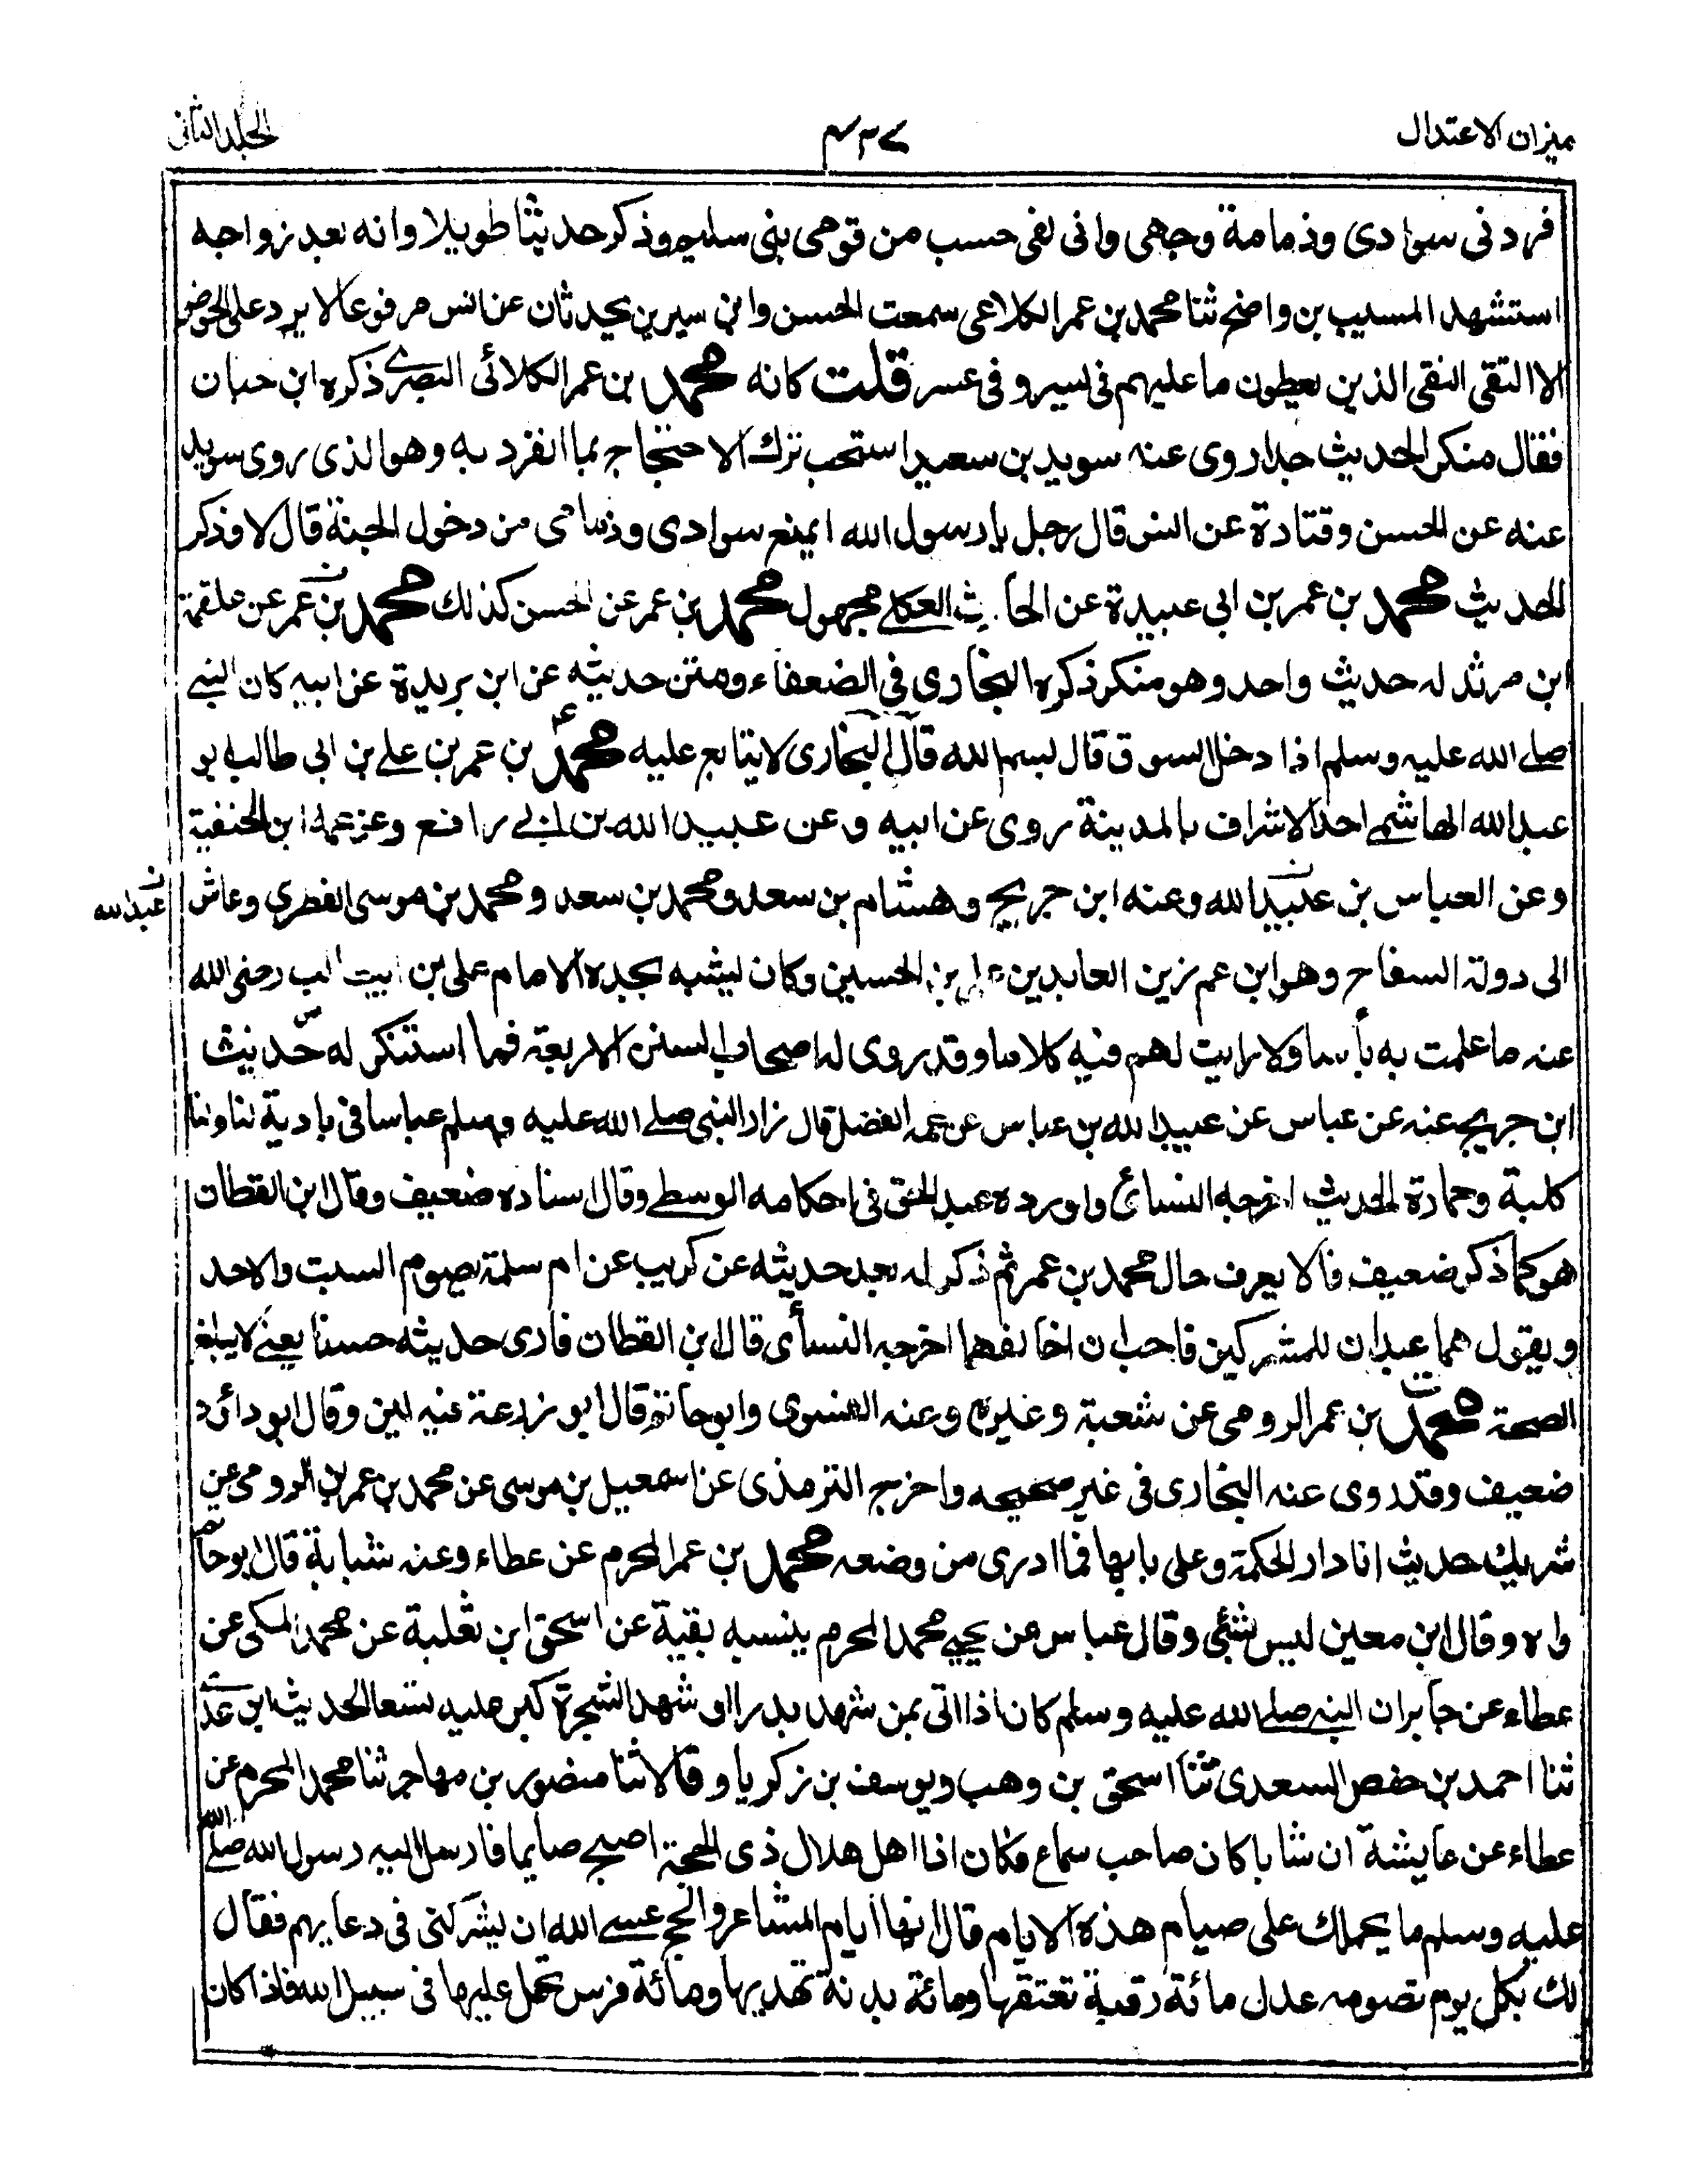 ميزان الاعتدال
الجلد الثانى
فردنى سوادى وذمامة وجهى وانى لفى حسب من قومى بنى سليم وذكر حديثا طويلا وانه بعد زواجه
استشهد المسيب بن واضح ثنا محمد بن عمر الكلاعى سمعت الحسن وابن سيرين يحدثان عن انس مرفوعا لا يرد على الحوض
الا التقى النقى الذين يعطون ما عليهم فى يسر وفى عسر قلت كانه محمد بن عمر الكلائى البصرے ذكره ابن حبان
فقال منكر الحديث جدا روى عنه سويد بن سعيد استحب ترك الاحتجاج بما انفرد به وهو الذى روى سويد
عنه عن الحسن وقتادة عن انس قال رجل يا رسول الله ايمنع سوادى وذمامى من دخول الجنة قال لا وذكر
الحديث محمد بن عمر بن ابى عبيدة عن الحارث العكلے مجهول محمد بن عمر عن الحسن كذلك محمد بن عمر عن علقمة
ابن مرثد له حديث واحد وهو منكر ذكره البخارى فى الضعفاء ومتن حديثه عن ابن بريدة عن ابيه كان النبے
صلے الله عليه وسلم اذا دخل السوق قال بسم الله قال البخارى لا يتابع عليه محمد بن عمر بن علے بن ابى طالب ابو
عبد الله الهاشمے احد الاشراف بالمدينة روى عن ابيه وعن عبيد الله بن ابے رافع وعن عمه ابن الحنفية
وعن العباس بن عبيد الله وعنه ابن جريج وهشام بن سعد ومحمد بن سعد ومحمد بن موسى الفطرى وعاش
عبد الله
الى دولة السفاح وهو ابن عم زين العابدين على بن الحسين وكان يشبه بجده الامام على بن ابيطالب رضى الله
عنه ما علمت به بأسا ولا رايت لهم فيه كلاما وقد روى له اصحاب السنن الاربعة فما استنكر له حديث
ابن جريج عنه عن عباس عن عبيد الله بن عباس عن عمه الفضل قال زار النبى صلے الله عليه وسلم عباسا فى بادية لنا ولنا
كلبة وحمارة الحديث اخرجه النسائى واورده عبد الحق فى احكامه الوسطے وقال اسناده ضعيف وقال ابن القطان
هو كما ذكر ضعيف فالا يعرف حال محمد بن عمر ثم ذكر له بعد حديثه عن كريب عن ام سلمة يصوم السبت والاحد
ويقول هما عيدان للمشركين فاحب ان اخالفهما اخرجه النسأى قال ابن القطان فارى حديثه حسنا يعنے لا يبلغ
الصحة محمد بن عمر الرومى عن شعبة وغيره وعنه الفسوى وابوحاتم قال ابو زرعة فيه لين وقال ابو داؤد
ضعيف وقد روى عنه البخارى فى غير صحيحه واخرج الترمذى عن اسمعيل بن موسى عن محمد بن عمر بن الرومى عن
شريك حديث انا دار الحكمة وعلى بابها فما ادرى من وضعه محمد بن عمر المحرم عن عطاء وعنه شبابة قال ابوحاتم
واه وقال ابن معين ليس بشئى وقال عباس عن يحيے محمد المحرم ينسبه بقية عن اسحق ابن ثعلبة عن محمد المكى عن
عطاء عن جابر ان النبے صلے الله عليه وسلم كان اذا اتى بمن شهد بدرا او شهد الشجرة كبر عليه تسعا الحديث ابن عدے
ثنا احمد بن حفص السعدى ثنا اسحق بن وهب ويوسف بن زكريا وقالا ثنا منصور بن مهاجر ثنا محمد المحرم عن
عطاء عن عايشة ان شابا كان صاحب سماع فكان اذا اهل هلال ذى الحجة اصبح صايما فارسل اليه رسول الله صلے الله
عليه وسلم ما يحملك على صيام هذه الايام قال انها ايام المشاعر والحج عسے الله ان يشركنى فى دعايهم فقال
لك بكل يوم تصومه عدل مائة رقبة تعتقها ومائة بدنة تهديها ومائة فرس تحمل عليها فى سبيل الله فاذا كان